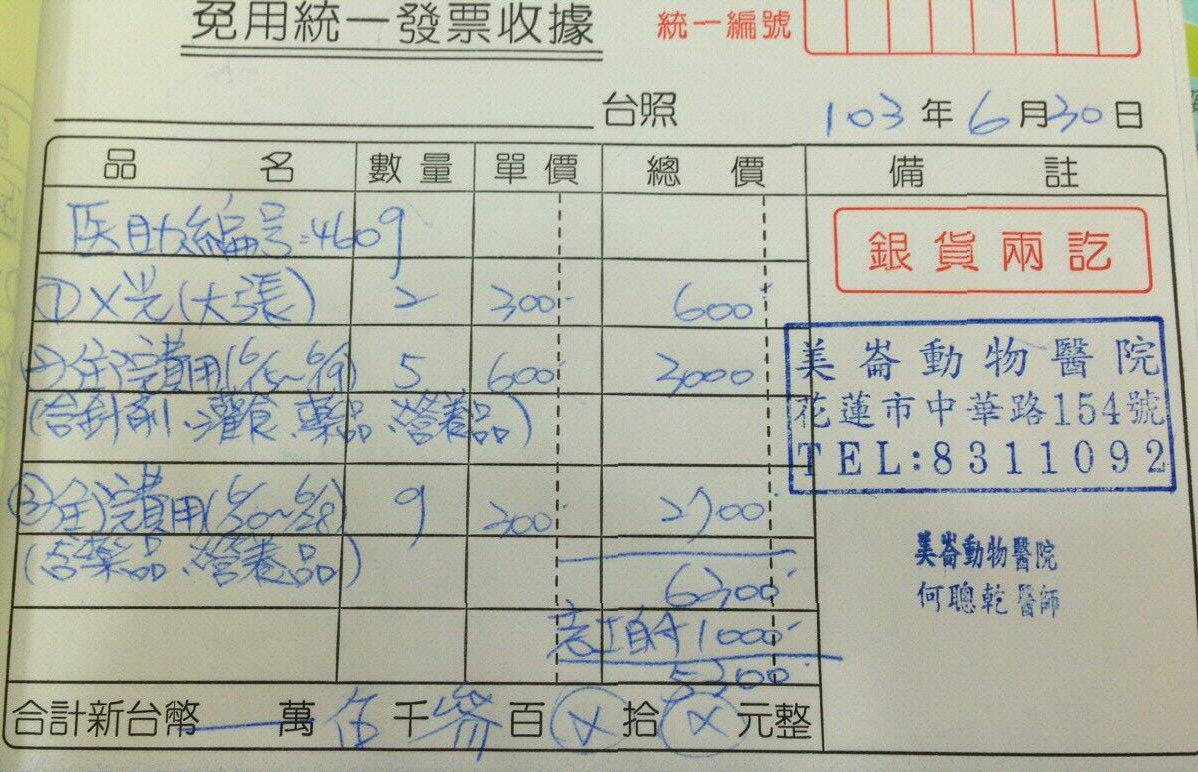 免用統一發票收據 統一編號
台照 103年6月30日
品名 數量 單價 總價 備註
医助編号:4609
銀貨兩訖
①X光(大張) 2 300 600
②住院費用(6/15~6/19) 5 600 3000
(含針劑、灌食、藥品、營養品)
美崙動物醫院
花蓮市中華路154號
TEL:8311092
③住院費用(6/20~6/28) 9 300 2700
(含藥品、營養品)
6300
美崙動物醫院
何聰乾醫師
志工自付1000
5300
合計新台幣 萬伍千參百X拾X元整